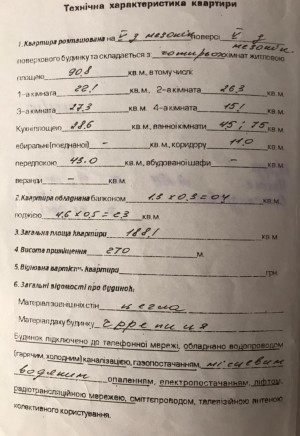 Технічна характеристика квартири
1. Квартира розташована на V з мезонін поверсі V з мезонін
поверхового будинку та складається з чотирьох кімнат житловою
площею 90,8 кв. м, в тому числі:
1-а кімната 22,1 кв. м, 2-а кімната 26,3 кв. м
3-а кімната 27,3 кв. м 4-а кімната 15,1 кв. м
Кухні площею 28,6 кв. м, ванної кімнати 4,5; 7,5 кв. м
вбиральні (поєднаної) - кв. м, коридору 11,0 кв. м
передпокою 43.0 кв. м, вбудованої шафи - кв. м
веранди - кв. м
2. Квартира обладнана балконом 1.3 x 0.3 = 0.4 кв. м
лоджією 4.6 x 0.5 = 2.3 кв. м
3. Загальна площа квартири 188.1 кв. м
4. Висота приміщення 270 м.
5. Відновна вартість квартири - грн
6. Загальні відомості про будинок:
Матеріал зовнішніх стін цегла
Матеріал даху будинку черепиця
Будинок підключено до телефонної мережі, обладнано водопроводом
(гарячим, холодним) каналізацією, газопостачанням, місцевим
водяним опаленням, електропостачанням, ліфтом,
радіотрансляційною мережею, сміттєпроводом, телевізійною антеною
колективного користування.